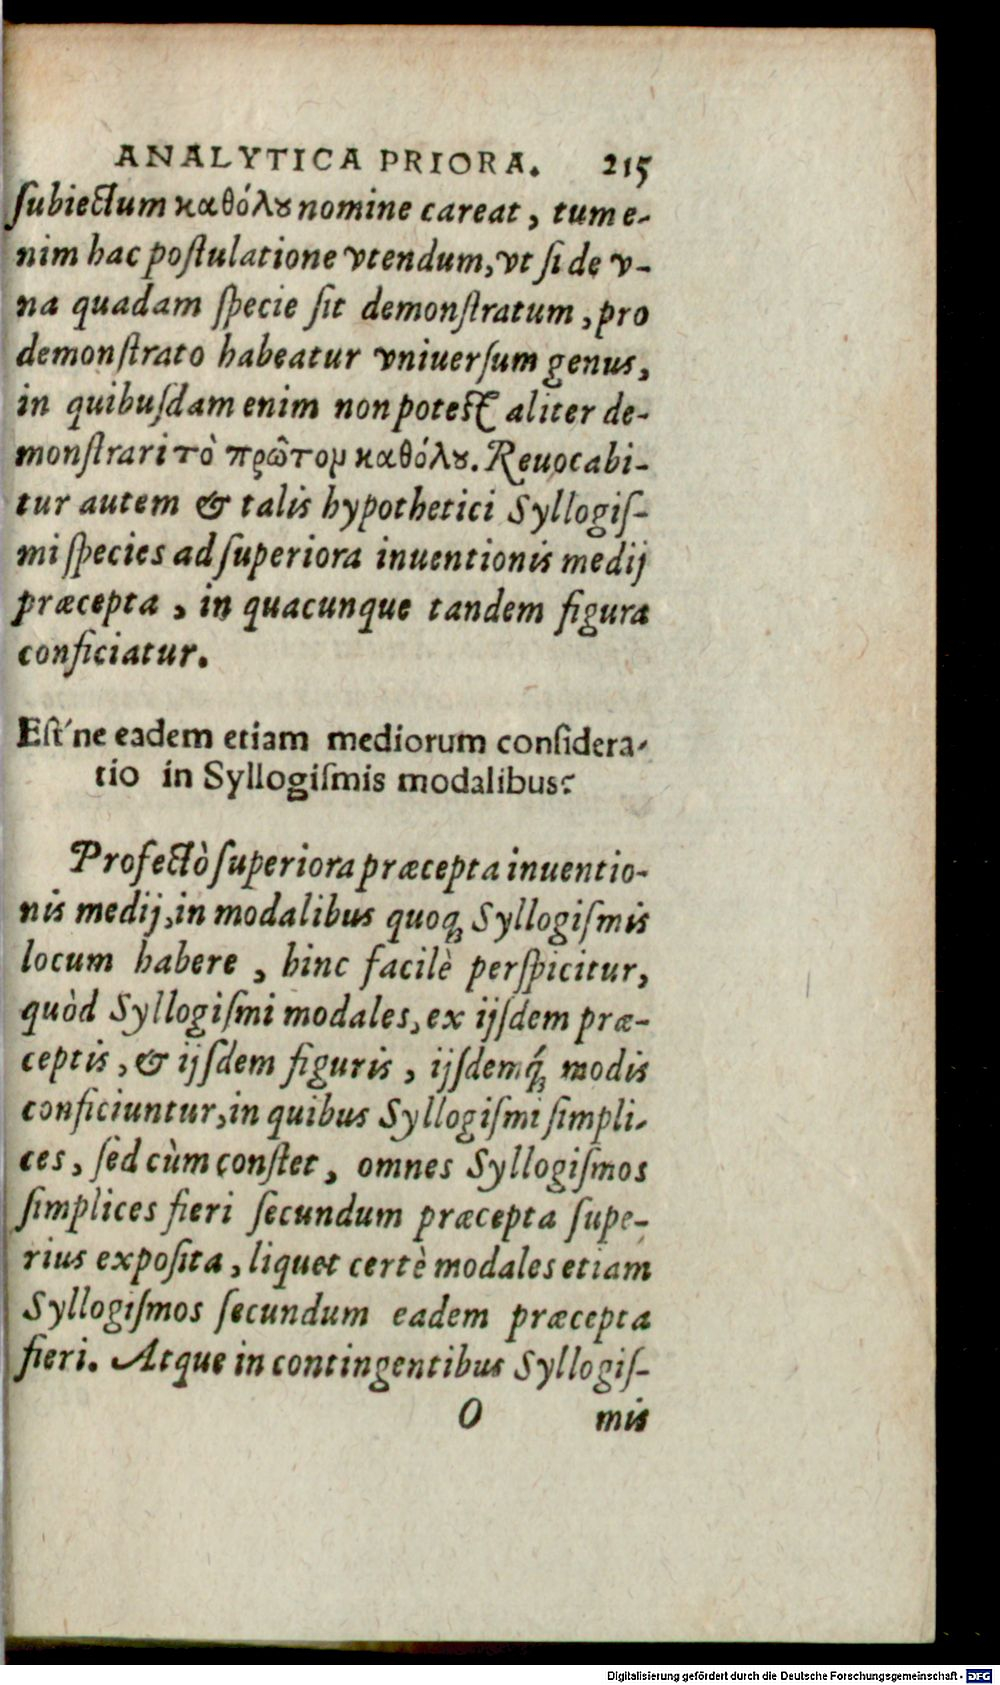 ANALYTICA PRIORA. 215
ſubiectum καθόλȣ nomine careat, tum e-
nim hac poſtulatione vtendum, vt ſi de v-
na quadam ſpecie ſit demonſtratum, pro
demonſtrato habeatur vniuerſum genus,
in quibuſdam enim non poteſt aliter de-
monſtrari τὸ πρῶτομ καθόλȣ. Reuocabi-
tur autem & talis hypothetici Syllogiſ-
mi ſpecies ad ſuperiora inuentionis medij
præcepta, in quacunque tandem figura
conficiatur.
Eſt'ne eadem etiam mediorum conſidera-
tio in Syllogiſmis modalibus?
Profectò ſuperiora præcepta inuentio-
nis medij, in modalibus quoq; Syllogiſmis
locum habere, hinc facilè perſpicitur,
quòd Syllogiſmi modales, ex ijſdem præ-
ceptis, & ijſdem figuris, ijſdemq́; modis
conficiuntur, in quibus Syllogiſmi ſimpli-
ces, ſed cùm conſtet, omnes Syllogiſmos
ſimplices fieri ſecundum præcepta ſupe-
rius expoſita, liquet certè modales etiam
Syllogiſmos ſecundum eadem præcepta
fieri. Atque in contingentibus Syllogiſ-
O mis
Digitalisierung gefördert durch die Deutsche Forschungsgemeinschaft - DFG